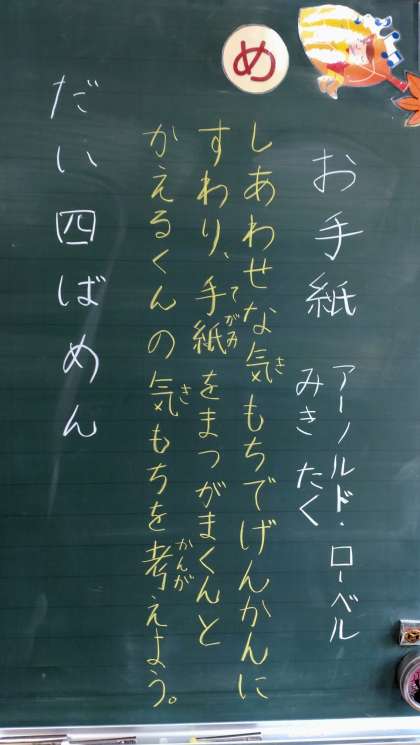 お手紙
アーノルド・ローベル
みき たく
め
しあわせな気もちでげんかんに
すわり、手紙をまつがまくんと
かえるくんの気もちを考えよう。
き
てがみ
き
かんが
だい四ばめん